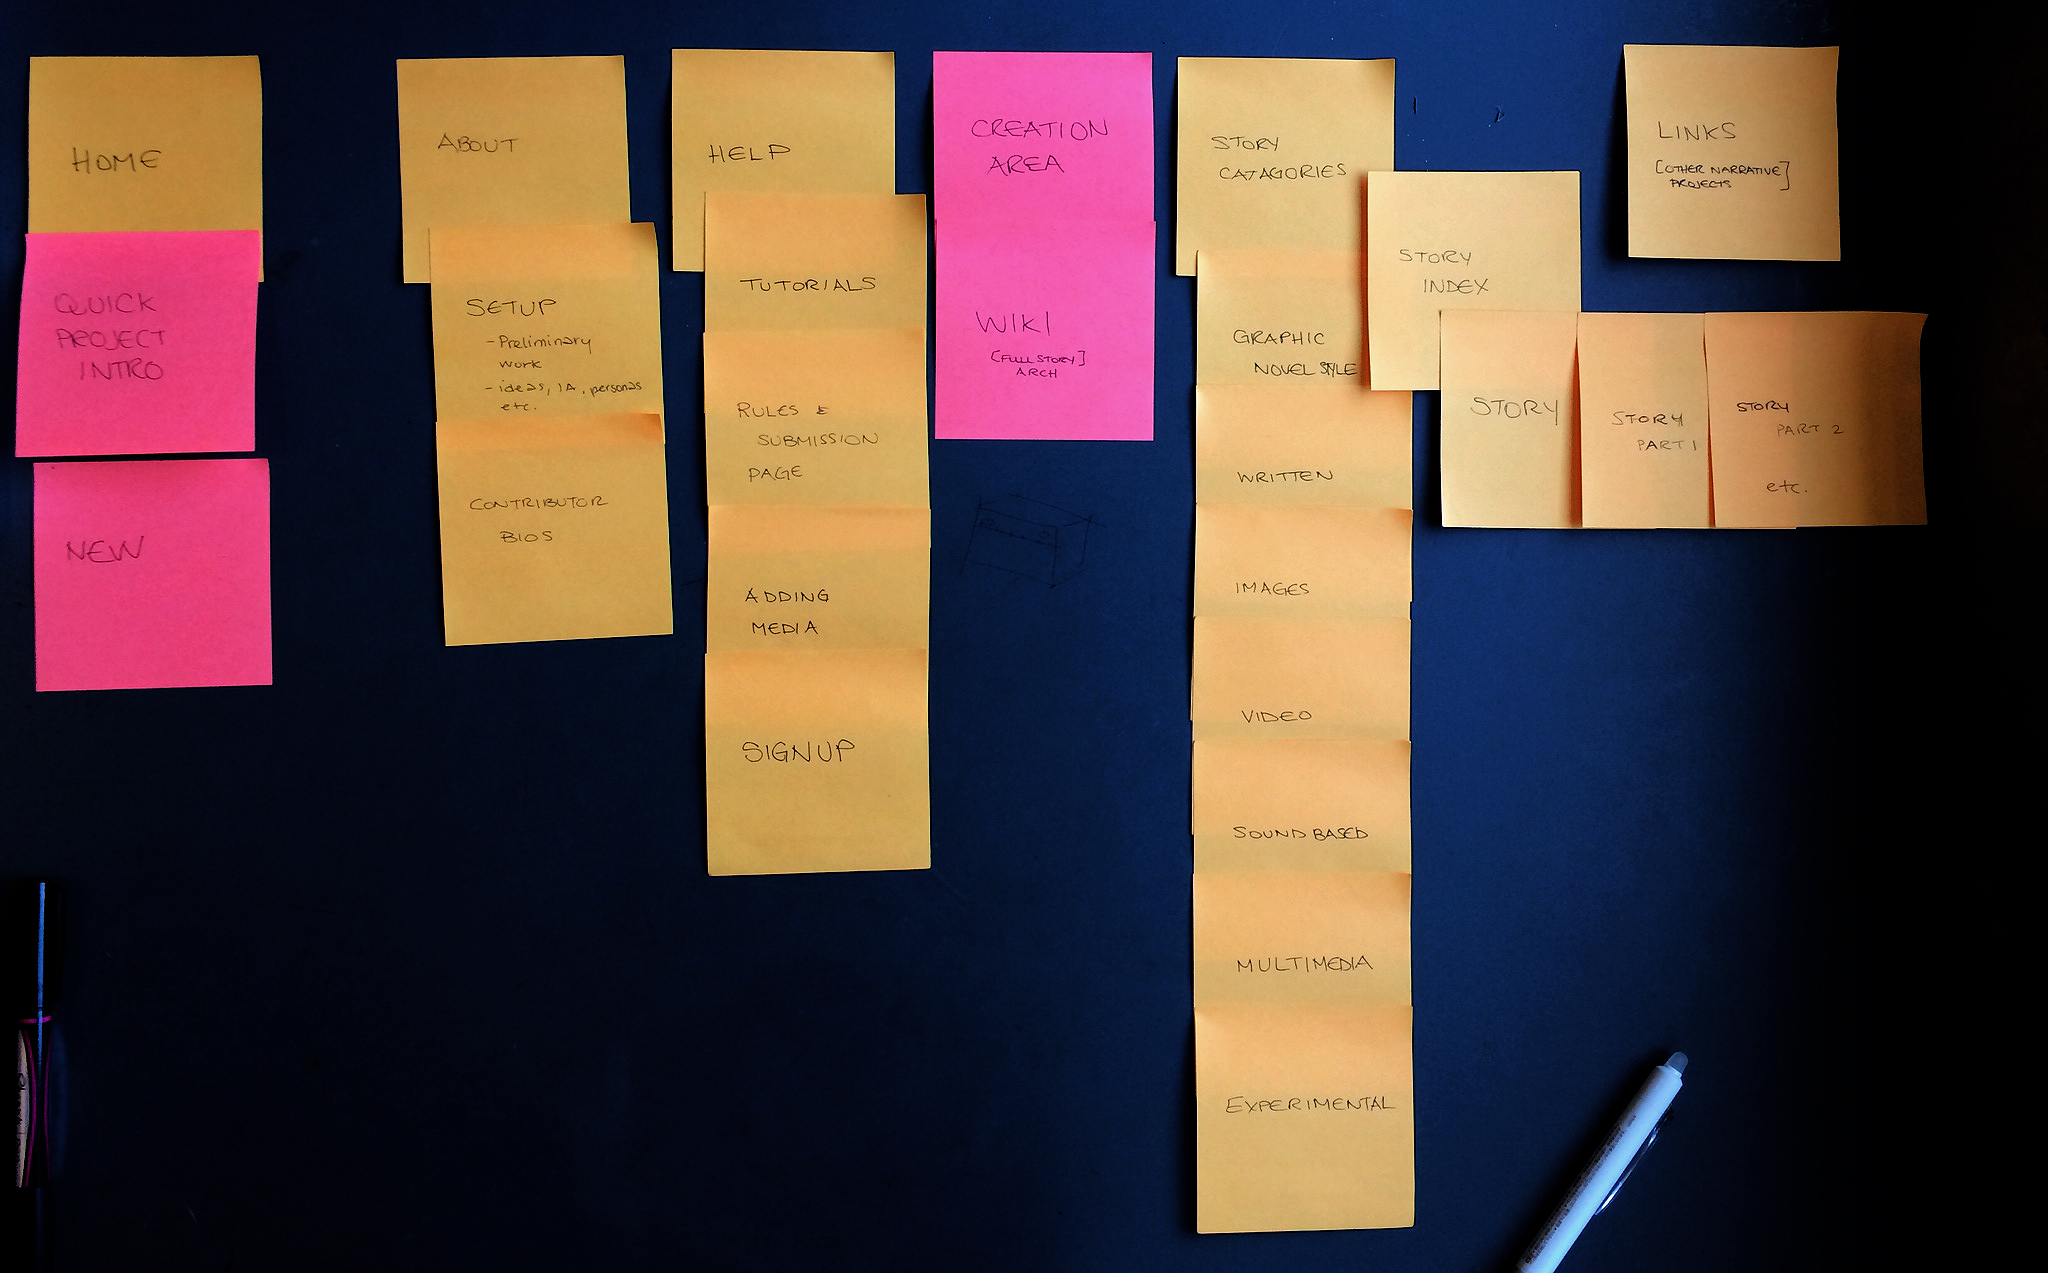 HOME
QUICK
PROJECT
INTRO
NEW
ABOUT
SETUP
- Preliminary
work
- ideas, IA, personas
etc.
CONTRIBUTOR
BIOS
HELP
TUTORIALS
RULES &
SUBMISSION
PAGE
ADDING
MEDIA
SIGN UP
CREATION
AREA
WIKI
[FULL STORY]
ARCH
STORY
CATAGORIES
GRAPHIC
NOVEL STYLE
WRITTEN
IMAGES
VIDEO
SOUND BASED
MULTIMEDIA
EXPERIMENTAL
STORY
INDEX
STORY
STORY
PART 1
STORY
PART 2
etc.
LINKS
[OTHER NARRATIVE]
PROJECTS